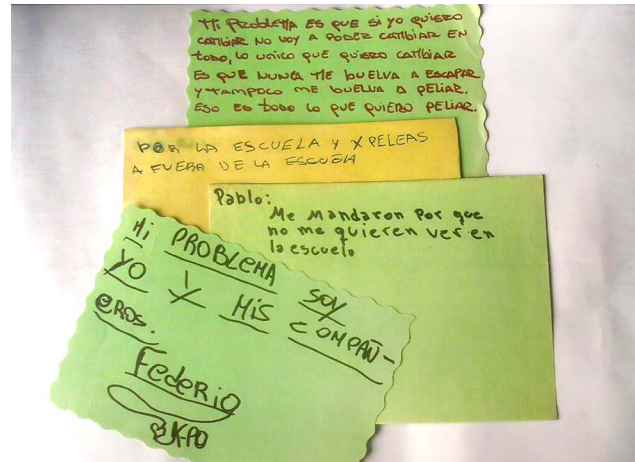 Mi PRoblEMA ES QUE Si YO QUIERO
CAMBIAR NO VOY A PODER CAMBIAR EN
todo, lo UNICO QUE QUIERO CAMBIAR
ES QUE NUNCA ME bUElVA A ESCAPAR
Y tAMPOCO ME bUElVA A PELIAR.
ESO ES todo lo QUE QUIERO PELIAR.
POR LA ESCUELA Y X PELEAS
A FUERA DE LA ESCUELA
Pablo:
Me Mandaron Por que
no me quieren ver en
la escuela
Mi PROBLEMA SOY
YO Y MiS COMPAÑ-
eROS.
FedeRio